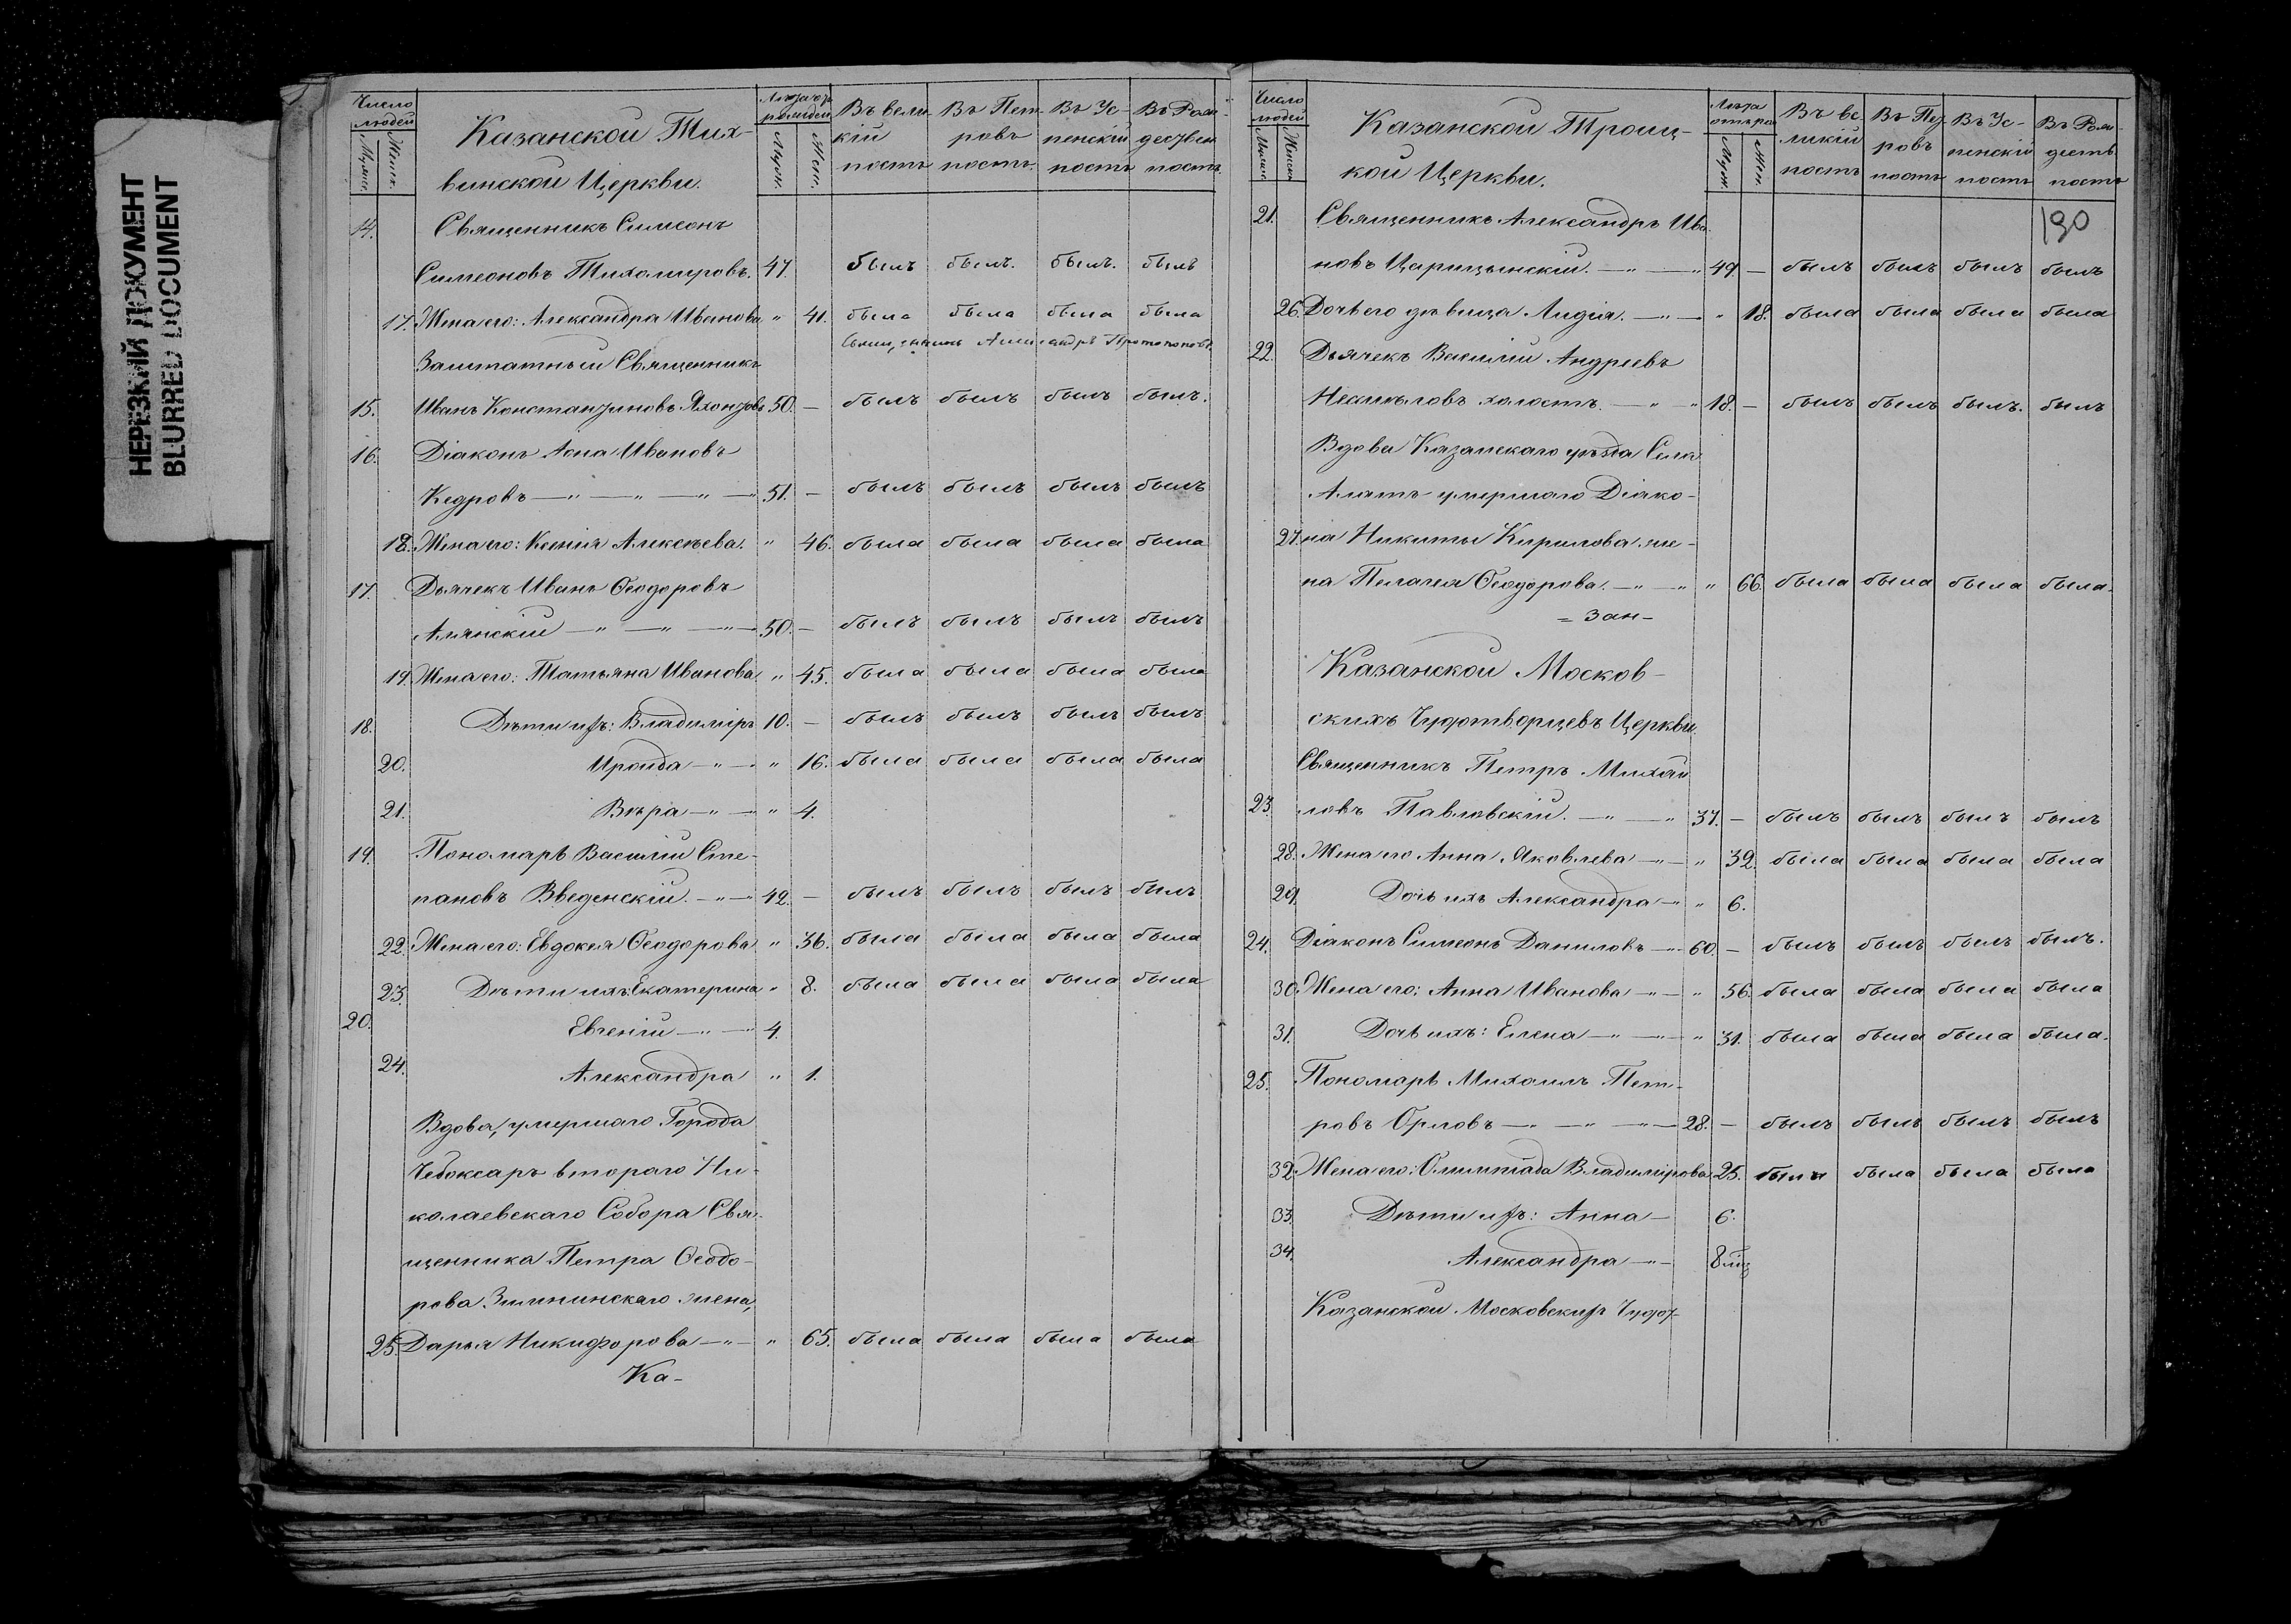 НЕРЕЗКИЙ ДОКУМЕНТ
BLURRED DOCUMENT
Число людей
Мужес. Женск.
Казанской Тих-
винской Церкви.
Муж. Жен.
Въ вели-кій постъ
Въ Пет-ровъ постъ.
Въ Ус-пенскій постъ
Въ Рож-дествен постъ.
14. Священникъ Симеонъ
Симеоновъ Тихомировъ. 47. былъ былъ. былъ. былъ
17. Жена его: Александра Иванова „ 41. была была была была
Заштатный Священникъ
15. Иванъ Константиновъ 50. — былъ былъ былъ былъ.
16. Діаконъ Іона Ивановъ
Кедровъ —„— —„— 51. — былъ былъ былъ былъ
18. Жена его: Ксенія Алексѣева. „ 46. была была была была
17. Дьячекъ Иванъ Ѳеодоровъ
—„— —„— 50. — былъ былъ былъ былъ
19. Жена его: Татьяна Иванова „ 45. была была была была
18. Дѣти ихъ: Владиміръ 10. — былъ былъ былъ былъ
20. Ираида —„— „ 16. была была была была
21. Вѣра —„— „ 4.
19. Пономарь Василій Сте-
пановъ Введенскій. —„— 42. — былъ былъ былъ былъ
22. Жена его: Евдокея Ѳеодорова „ 36. была была была была
23. Дѣти ихъ: Екатерина „ 8. была была была была
20. Евгеній —„— 4.
24. Александра „ 1.
Вдова, умершаго Города
Чебоксаръ втораго Ни-
колаевскаго Собора Свя-
щенника Петра Ѳеодо-
рова Зимнинскаго жена,
25. Дарья Никифорова —„— „ 65. была была была была
Ка-
Число людей
Мужес. Женск.
Казанской Троиц-
кой Церкви.
Муж. Жен.
Въ ве-ликій постъ
Въ Пет-ровъ постъ
Въ Ус-пенскій постъ
Въ Рож-деств постъ
190
21. Священникъ Александръ Ива-
новъ Царицынскій. —„— 49. — былъ былъ былъ былъ
26. Дочь его дѣвица Лидія. —„— „ 18. была была была была
22. Дьячекъ Василій Андреевъ
Несмѣловъ холостъ. —„— 18. — былъ былъ былъ. былъ
Вдова Казанскаго уѣзда Села
Алатъ умершаго Діако-
27. на Никиты Кирилова же-
на Пелагея Ѳеодорова. —„— „ 66. была была была была.
= Зан-
Казанской Москов-
скихъ Чудотворцевъ Церкви.
Священникъ Петръ Михай-
23. ловъ Павловскій. —„— 37. — былъ былъ былъ былъ
28. Жена его Анна Яковлева —„— „ 32. была была была была
29. Дочь ихъ Александра —„ „ 6.
24. Діаконъ Симеонъ Даниловъ —„— 60. — былъ былъ былъ былъ.
30. Жена его: Анна Иванова —„— „ 56. была была была была
31. Дочь ихъ: Елена —„— „ 31. была была была была.
25. Пономарь Михаилъ Пет-
ровъ Орловъ —„— —„— 28. — былъ былъ былъ былъ
32. Жена его: Олимпіада Владимірова 25. была была была была
33. Дѣти ихъ: Анна — 6.
34. Александра —„— 8 міц
Казанской Московскихъ Чудот-